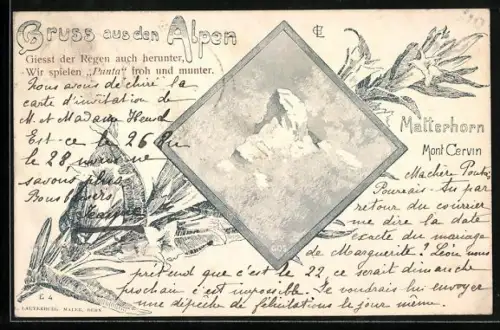 Gruss aus den Alpen
Giesst der Regen auch herunter,
Wir spielen „Punta" froh und munter.
Nous avons déchiré la
carte d'invitation de
M. et Madame
Est-ce le 26 ou
le 28, nous ne
savons plus
Bons
Matterhorn
Mont Cervin
Ma chère
Pourrais-tu par
retour du courrier
me dire la date
exacte du mariage
de Marguerite? Léon nous
prétend que c'est le 22 ce serait dimanche
prochain c'est impossible. Je voudrais lui envoyer
une dépêche de félicitations le jour même.
E 4
LAUTERBURG, MALER, BERN